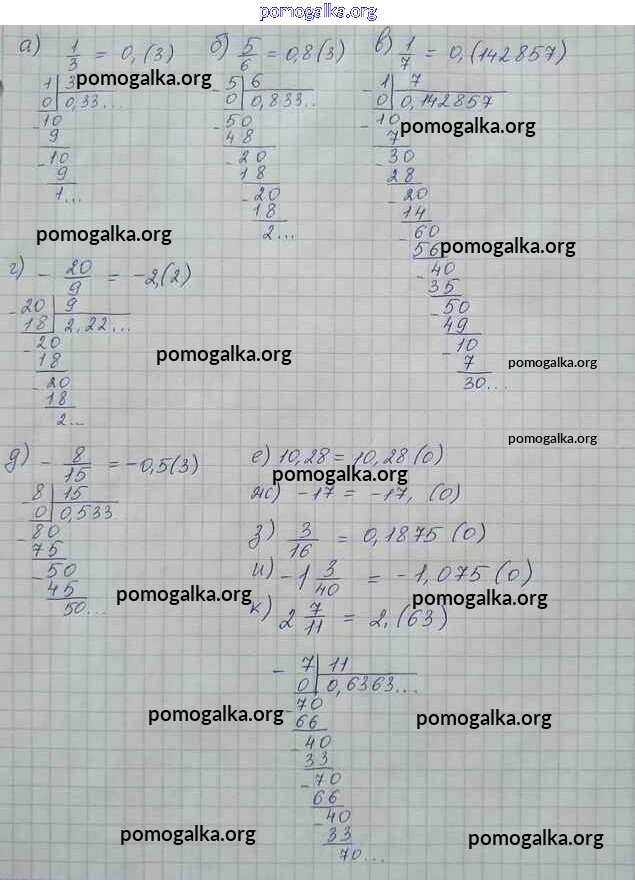 pomogalka.org
а) 1/3 = 0,(3)
1 | 3
0 | 0,33...
-10
9
-10
9
1...
pomogalka.org
б) 5/6 = 0,8(3)
-5 | 6
0 | 0,833...
-50
48
-20
18
-20
18
2...
в) 1/7 = 0,(142857)
-1 | 7
0 | 0,142857
-10
7
-30
28
-20
14
-60
56
-40
35
-50
49
-10
7
30...
pomogalka.org
pomogalka.org
pomogalka.org
г) - 20/9 = -2,(2)
-20 | 9
18 | 2,22...
-20
18
-20
18
2...
pomogalka.org
pomogalka.org
pomogalka.org
д) - 8/15 = -0,5(3)
-8 | 15
0 | 0,533
-80
75
-50
45
50...
е) 10,28 = 10,28(0)
pomogalka.org
ж) -17 = -17, (0)
з) 3/16 = 0,1875 (0)
и) -1 3/40 = -1,075 (0)
pomogalka.org
pomogalka.org
к) 2 7/11 = 2,(63)
- 7 | 11
0 | 0,6363...
-70
66
-40
33
-70
66
-40
33
70...
pomogalka.org
pomogalka.org
pomogalka.org
pomogalka.org